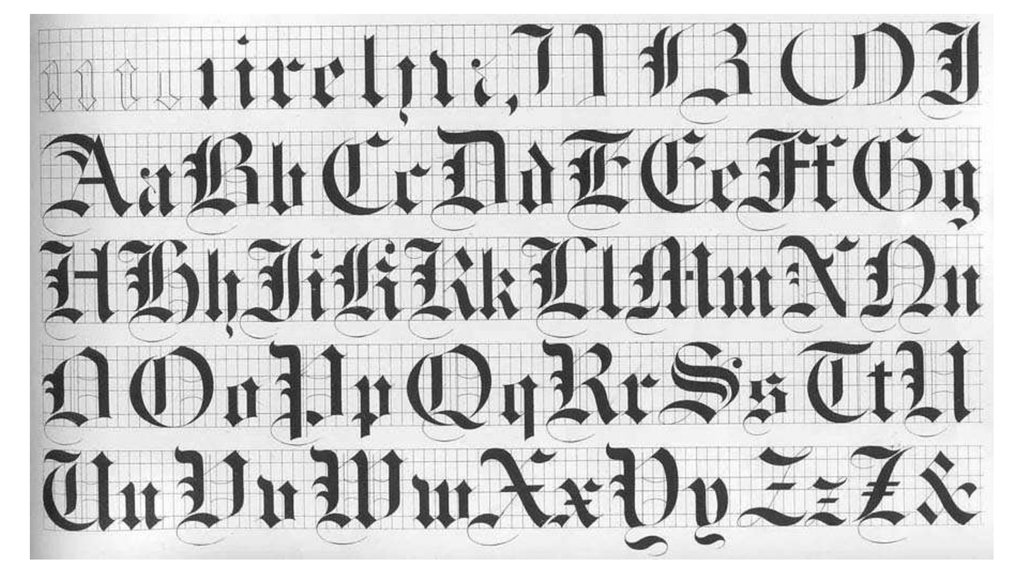 i r e l
A a B b C c D d E E e F f G g
H H h I i K K k L l M m N N n
N O o P p Q q R r S s T t U
U u V v W w X x Y y Z z Z &